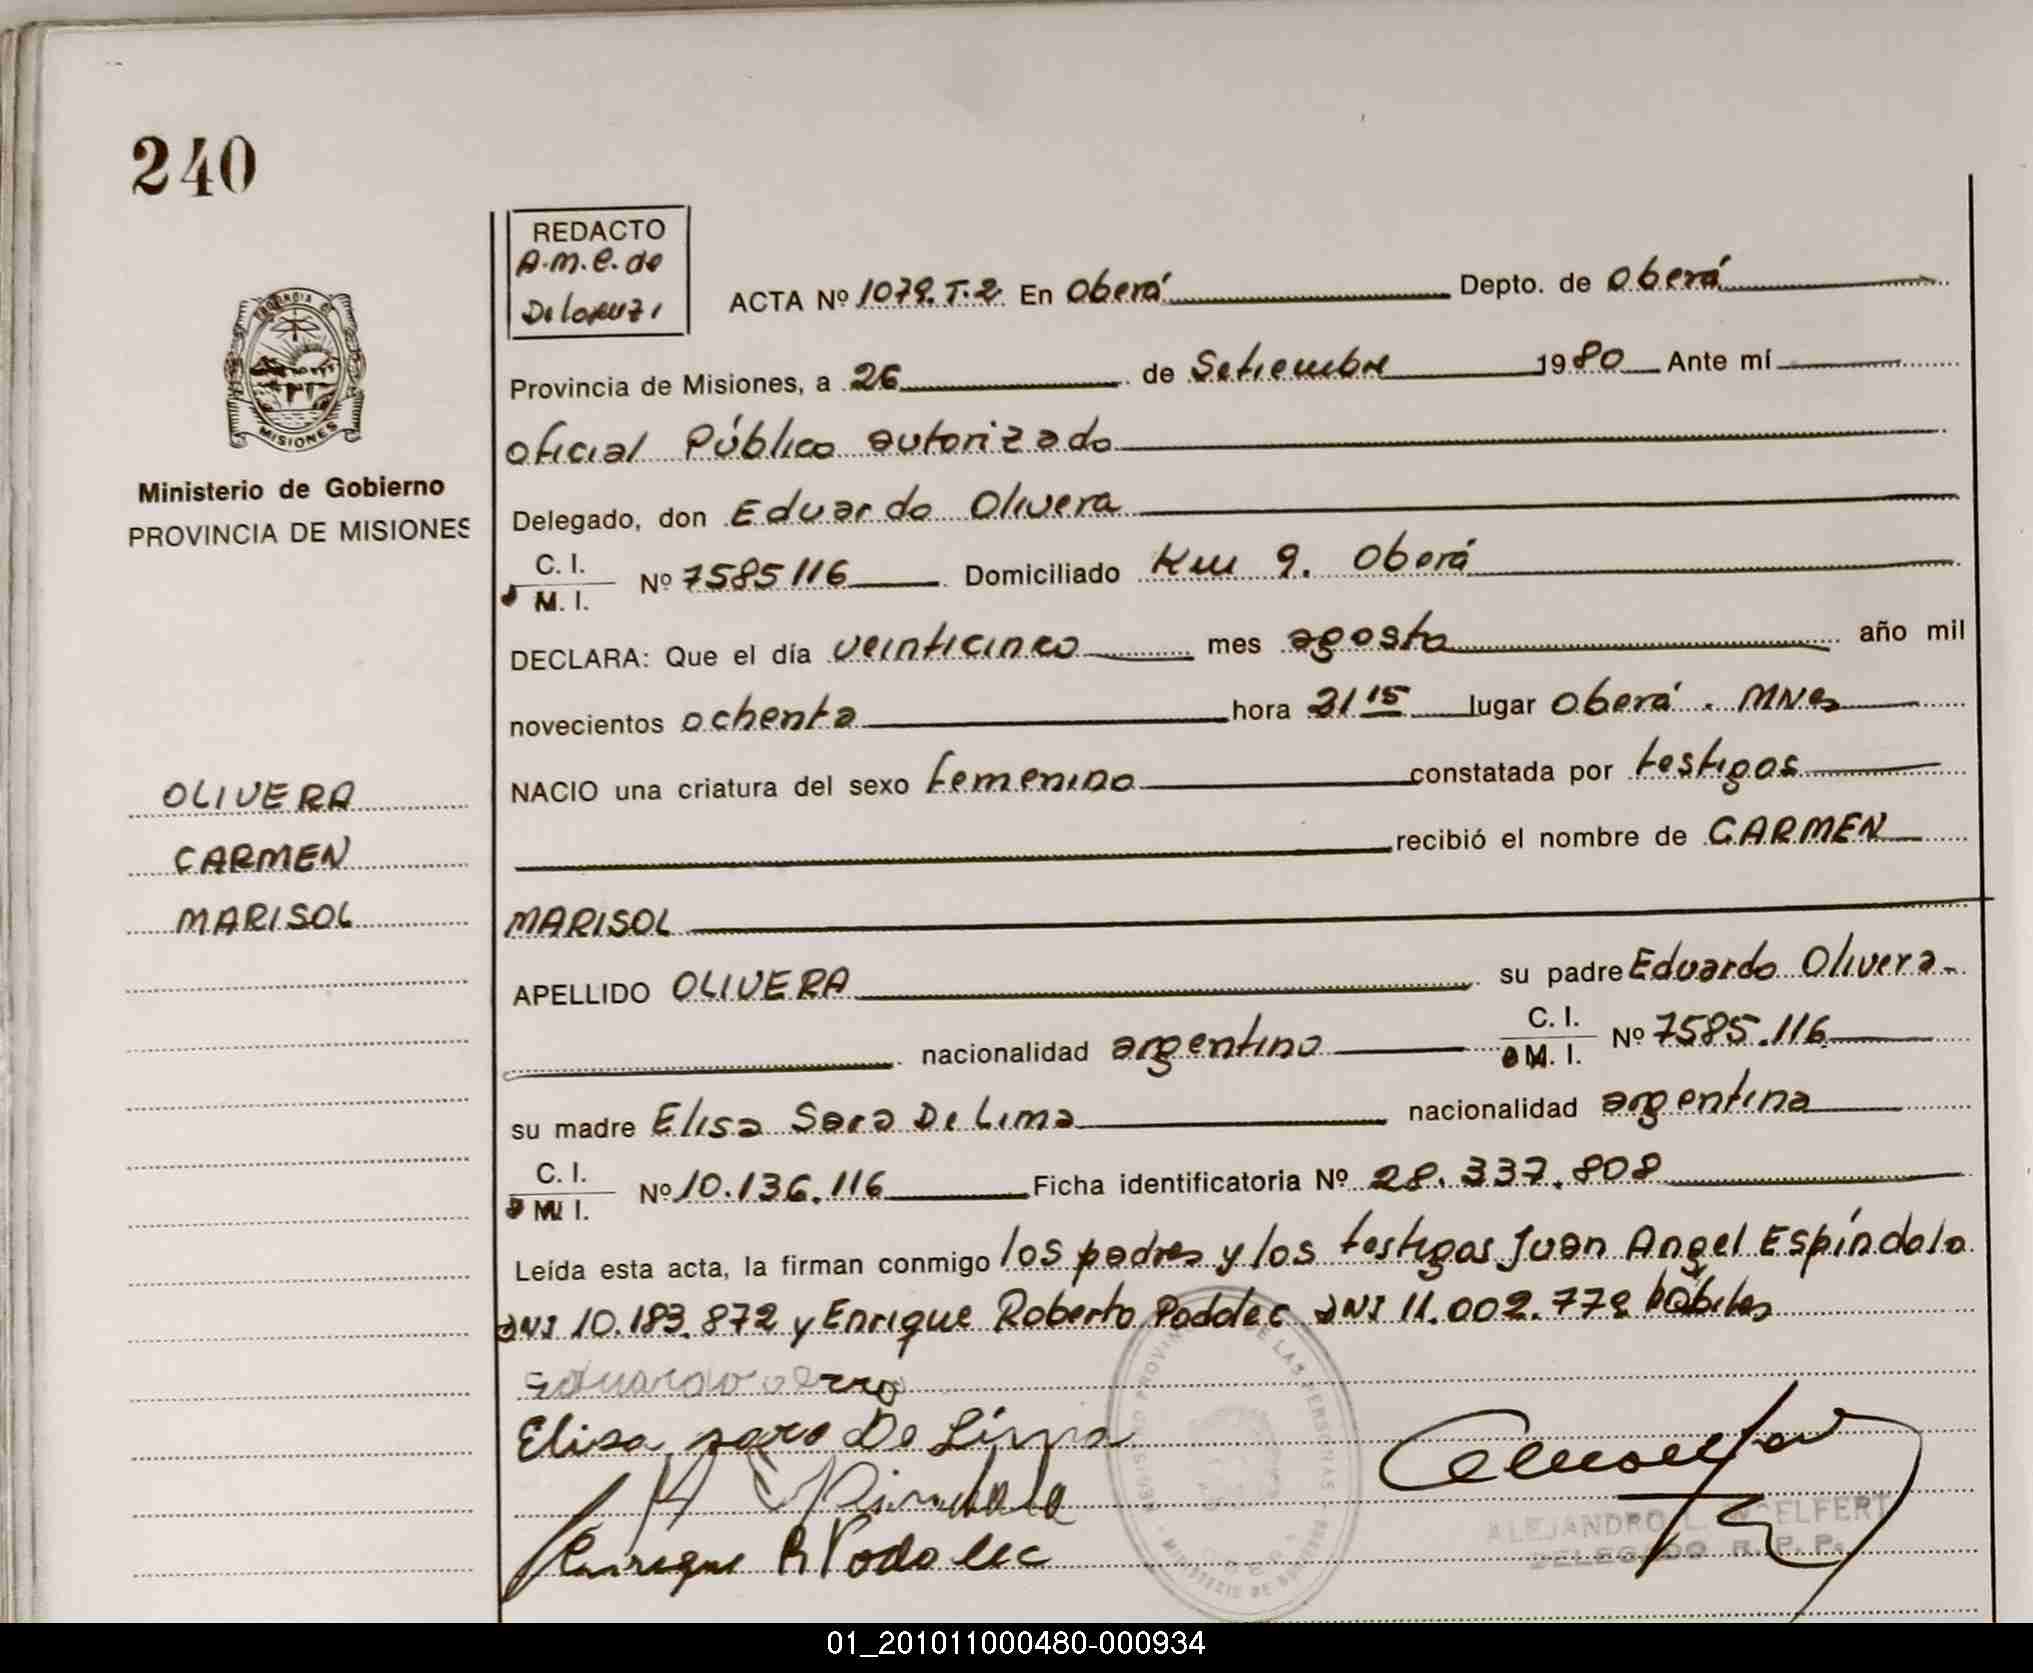 240
REDACTO
A.M.E. de
ACTA Nº 1079. T.2. En Oberá Depto. de Oberá
Provincia de Misiones, a 26 de Setiembre 1980 Ante mí
Oficial Público autorizado
Delegado, don Eduardo Olivera
C. I.
M. I.
Nº 7585116 Domiciliado Km 9. Oberá
DECLARA: Que el día veinticinco mes agosto año mil
novecientos ochenta hora 21 15 lugar Oberá. MNes
NACIO una criatura del sexo femenino constatada por testigos
recibió el nombre de CARMEN
MARISOL
APELLIDO OLIVERA su padre Eduardo Olivera
nacionalidad argentino C. I. M. I. Nº 7585.116
su madre Elisa Sara De Lima nacionalidad argentina
C. I.
M. I.
Nº 10.136.116 Ficha identificatoria Nº 28.337.808
Leída esta acta, la firman conmigo los padres y los testigos Juan Angel Espíndola
DNI 10.183.872 y Enrique Roberto Podolec DNI 11.002.779 hábiles
Elisa sara De Lima
Enrique R Podolec
MISIONES
Ministerio de Gobierno
PROVINCIA DE MISIONES
OLIVERA
CARMEN
MARISOL
ALEJANDRO L.
DELEGADO R. P. P.
01_201011000480-000934